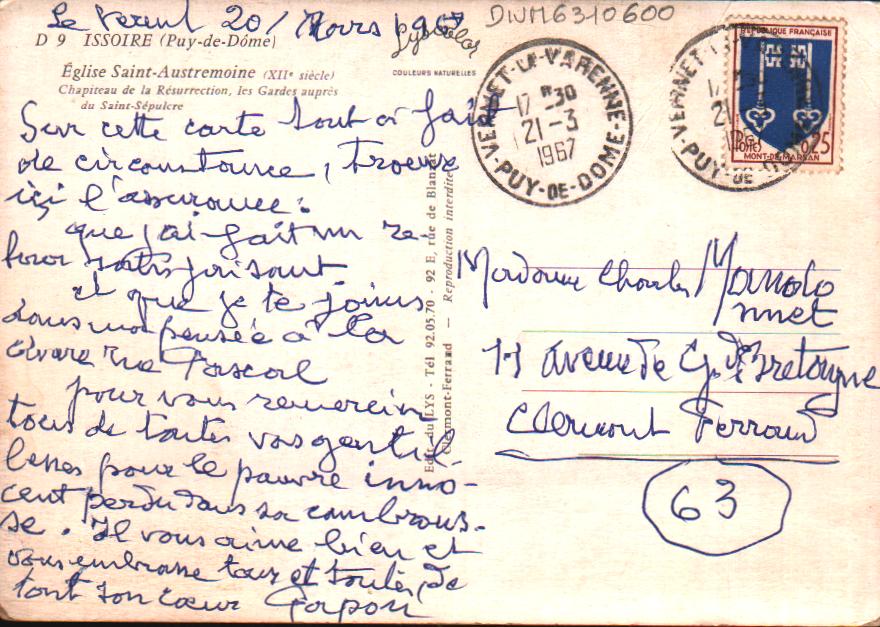 Le 20 / Mars 1967
DWM6310600
D 9 ISSOIRE (Puy-de-Dôme)
Lyscolor
COULEURS NATURELLES
Église Saint-Austremoine (XIIe siècle)
Chapiteau de la Résurrection, les Gardes auprès
du Saint-Sépulcre
Sur cette carte tout à fait
de circonstance, trouve
ici l'assurance :
que j'ai fait un re-
tour satisfaisant
et que je te joins
dans ma pensée à la
rue Pascal
pour vous remercier
tous de toutes vos gentil
lesses pour le pauvre inno-
cent perdu dans sa cambrous-
se. Il vous aime bien et
vous embrasse tous et toutes, de
tout son cœur
Edit. du LYS - Tél 92.05.70 - 92 E, rue de Blanzat
Clermont-Ferrand — Reproduction interdite
VERNET-LA-VARENNE
17 H 30
21-3
1967
PUY-DE-DOME
VERNET-LA
17
21
PUY-DE-DOME
REPUBLIQUE FRANÇAISE
POSTES
0,25
MONT-DE-MARSAN
Madame Charles Manolo
nnet
11 avenue de Gde Bretagne
Clermont Ferrand
63